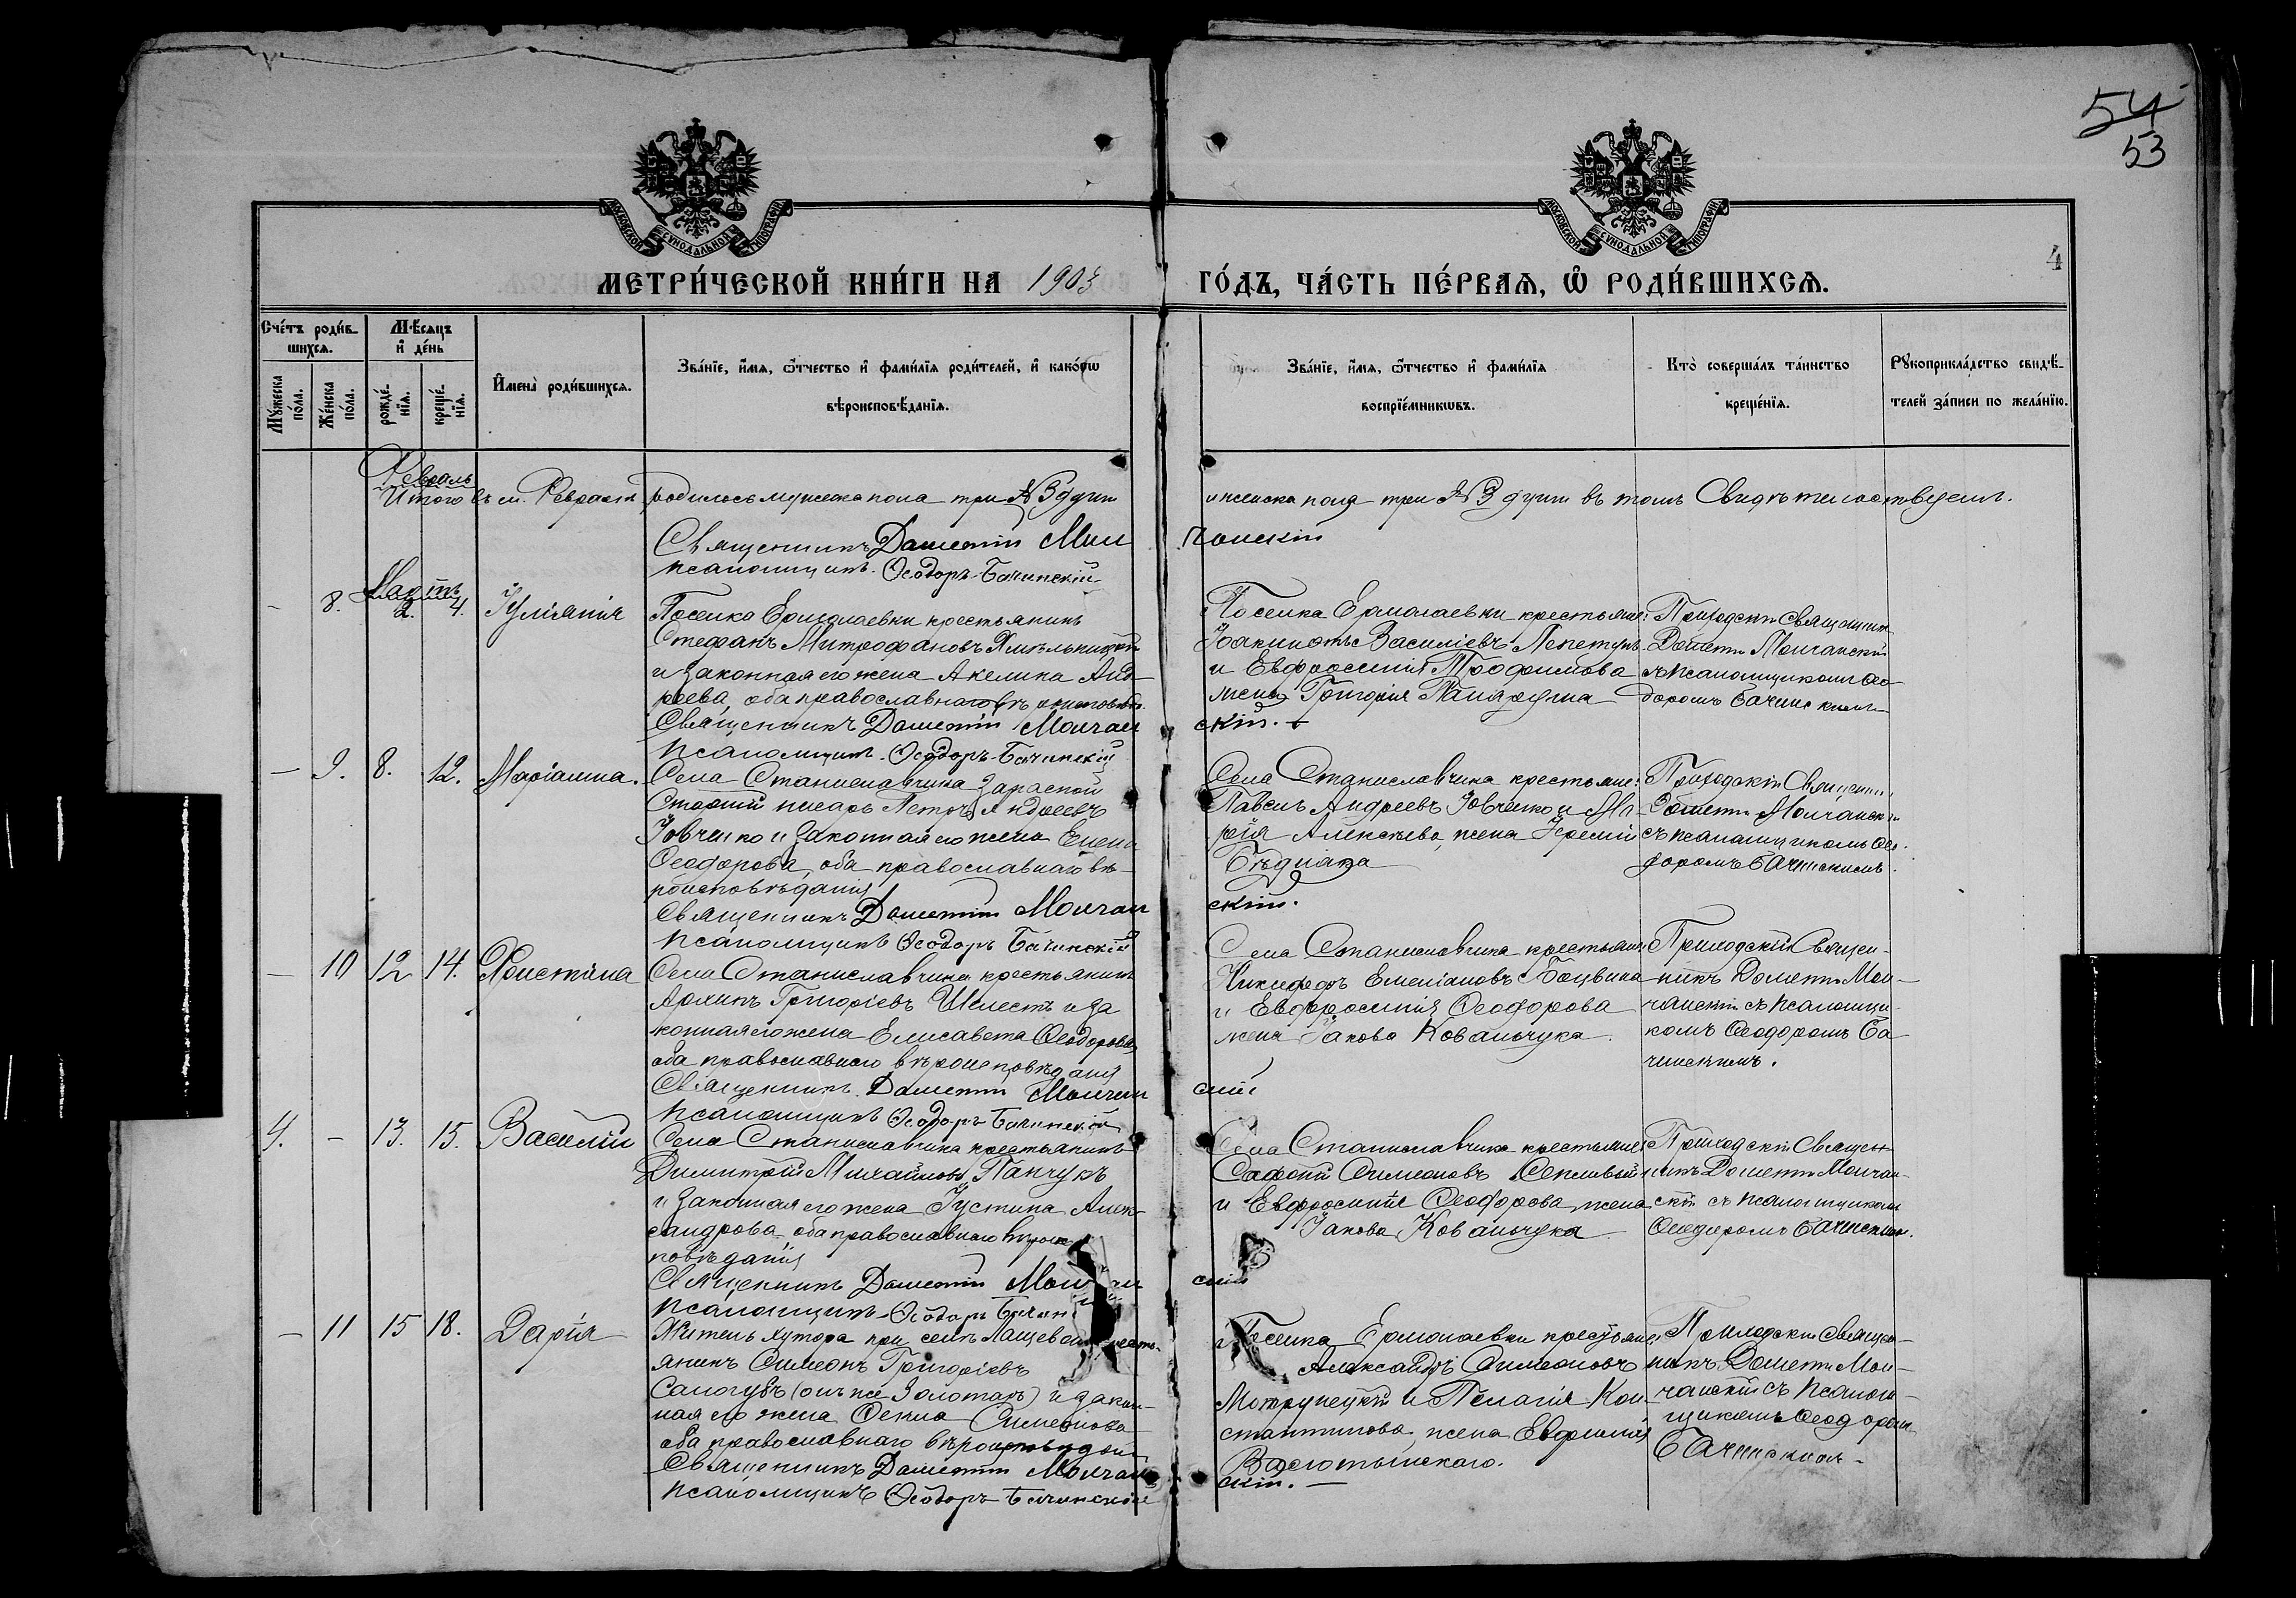 54
53
4
МОСКОВСКОЙ СУНОДАЛЬНОЙ ТИПОГРАФІИ
МОСКОВСКОЙ СУНОДАЛЬНОЙ ТИПОГРАФІИ
МЕТРИ́ЧЕСКОЙ КНИ́ГИ НА 1903
ГО́ДЪ, ЧА́СТЬ ПЕ́РВАѦ, Ѡ҆ РОДИ́ВШИХСѦ.
Сче́тъ роди́в-
шихсѧ.
Мꙋ́жеска
по́ла.
Же́нска
по́ла.
Мѣ́сѧцъ
и҆ де́нь
рожде́-
нїѧ.
креще́-
нїѧ.
И҆мена̀ роди́вшихсѧ.
Зва́нїе, и҆́мѧ, ѻ҆́тчество и҆ фами́лїѧ роди́телей, и҆ како́гѡ
вѣроисповѣ́данїѧ.
Зва́нїе, и҆́мѧ, ѻ҆́тчество и҆ фами́лїѧ
воспрїе́мникѡвъ.
Кто̀ соверша́лъ та́инство
креще́нїѧ.
Рꙋкоприкла́дство свидѣ́-
телей за́писи по жела́нїю.
Февраль
Итого въ м. Февралѣ родилось мужеска пола три № 3 души
и женска пола три № 3 души въ томъ Свидѣтельствуемъ.
Священникъ Дометій Мол
чанскій
псаломщикъ Ѳеодоръ Бачинскій
Мартъ
- 8. 2. 4. Іуліанія
Поселка Ермолаевки крестьянинъ
Стефанъ Митрофановъ Хмѣльницкій
и законная его жена Акелина Анд-
реева, оба православнаго вѣроисповѣд.
Священникъ Дометій Молчан
скій.
псаломщикъ Ѳеодоръ Бачинскій
Поселка Ермолаевки крестьяне:
Іоакимъ Василіевъ Лепетунъ
и Евфросинія Трофимова
жена Григорія
Приходскій Священникъ
Дометій Молчанскій
съ псаломщикомъ Ѳео-
доромъ Бачинскимъ
- 9. 8. 12. Маріамна.
Села Станиславчика запасной
Старшій писарь Петръ Андреевъ
Іовченко и законная его жена Елена
Ѳеодорова, оба православнаго вѣ-
роисповѣданія
Священникъ Дометій Молчан
скій.
псаломщикъ Ѳеодоръ Бачинскій
Села Станиславчика крестьяне:
Павелъ Андреевъ Іовченко и Ма-
рія Алексѣева, жена Іереміи
Бѣднака
Приходскій Священникъ
Дометій Молчанскій
съ псаломщикомъ Ѳео-
доромъ Бачинскимъ.
- 10 12 14. Христина
Села Станиславчика крестьянинъ
Архипъ Григоріевъ Шелестъ и за
конная его жена Елисавета Ѳеодорова,
оба православнаго вѣроисповѣданія
Священникъ Дометій Молчан
скій
псаломщикъ Ѳеодоръ Бачинскій
Села Станиславчика крестьяне:
Никифоръ Емеліановъ Боцвина
и Евфросинія Ѳеодорова
жена Іакова Ковальчука.
Приходскій Священ-
никъ Дометій Мол-
чанскій съ псаломщи-
комъ Ѳеодоромъ Ба-
чинскимъ.
4. - 13. 15. Василій
Села Станиславчика крестьянинъ
Димитрій Михайловъ Панчукъ
и законная его жена Іустина Алек-
сандрова оба православнаго вѣроис-
повѣданія
Священникъ Дометій Молчан
скій
псаломщикъ Ѳеодоръ Бачин
Села Станиславчика крестьяне:
Симеоновъ
и Евфросинія Ѳеодорова, жена
Іакова Ковальчука
Приходскій Священ-
никъ Дометій Молчан-
скій съ псаломщикомъ
Ѳеодоромъ Бачинскимъ.
- 11 15 18. Дарія
Житель хутора при селѣ Лащевой кресть-
янинъ Симеонъ Григоріевъ
Самогубъ (онъ же Золотарь) и закон-
ная его жена Ѳекла Симеонова
оба православнаго вѣроисповѣдан.
Священникъ Дометій Молчан
скій. -
псаломщикъ Ѳеодоръ Бачинскій
Поселка Ермолаевки крестьяне:
Александръ Симеоновъ
Мотрунецкій и Пелагія Кон-
стантинова, жена Евфимія
Приходскій Священ-
никъ Дометій Мол-
чанскій съ псалом-
щикомъ Ѳеодоромъ
Бачинскимъ -